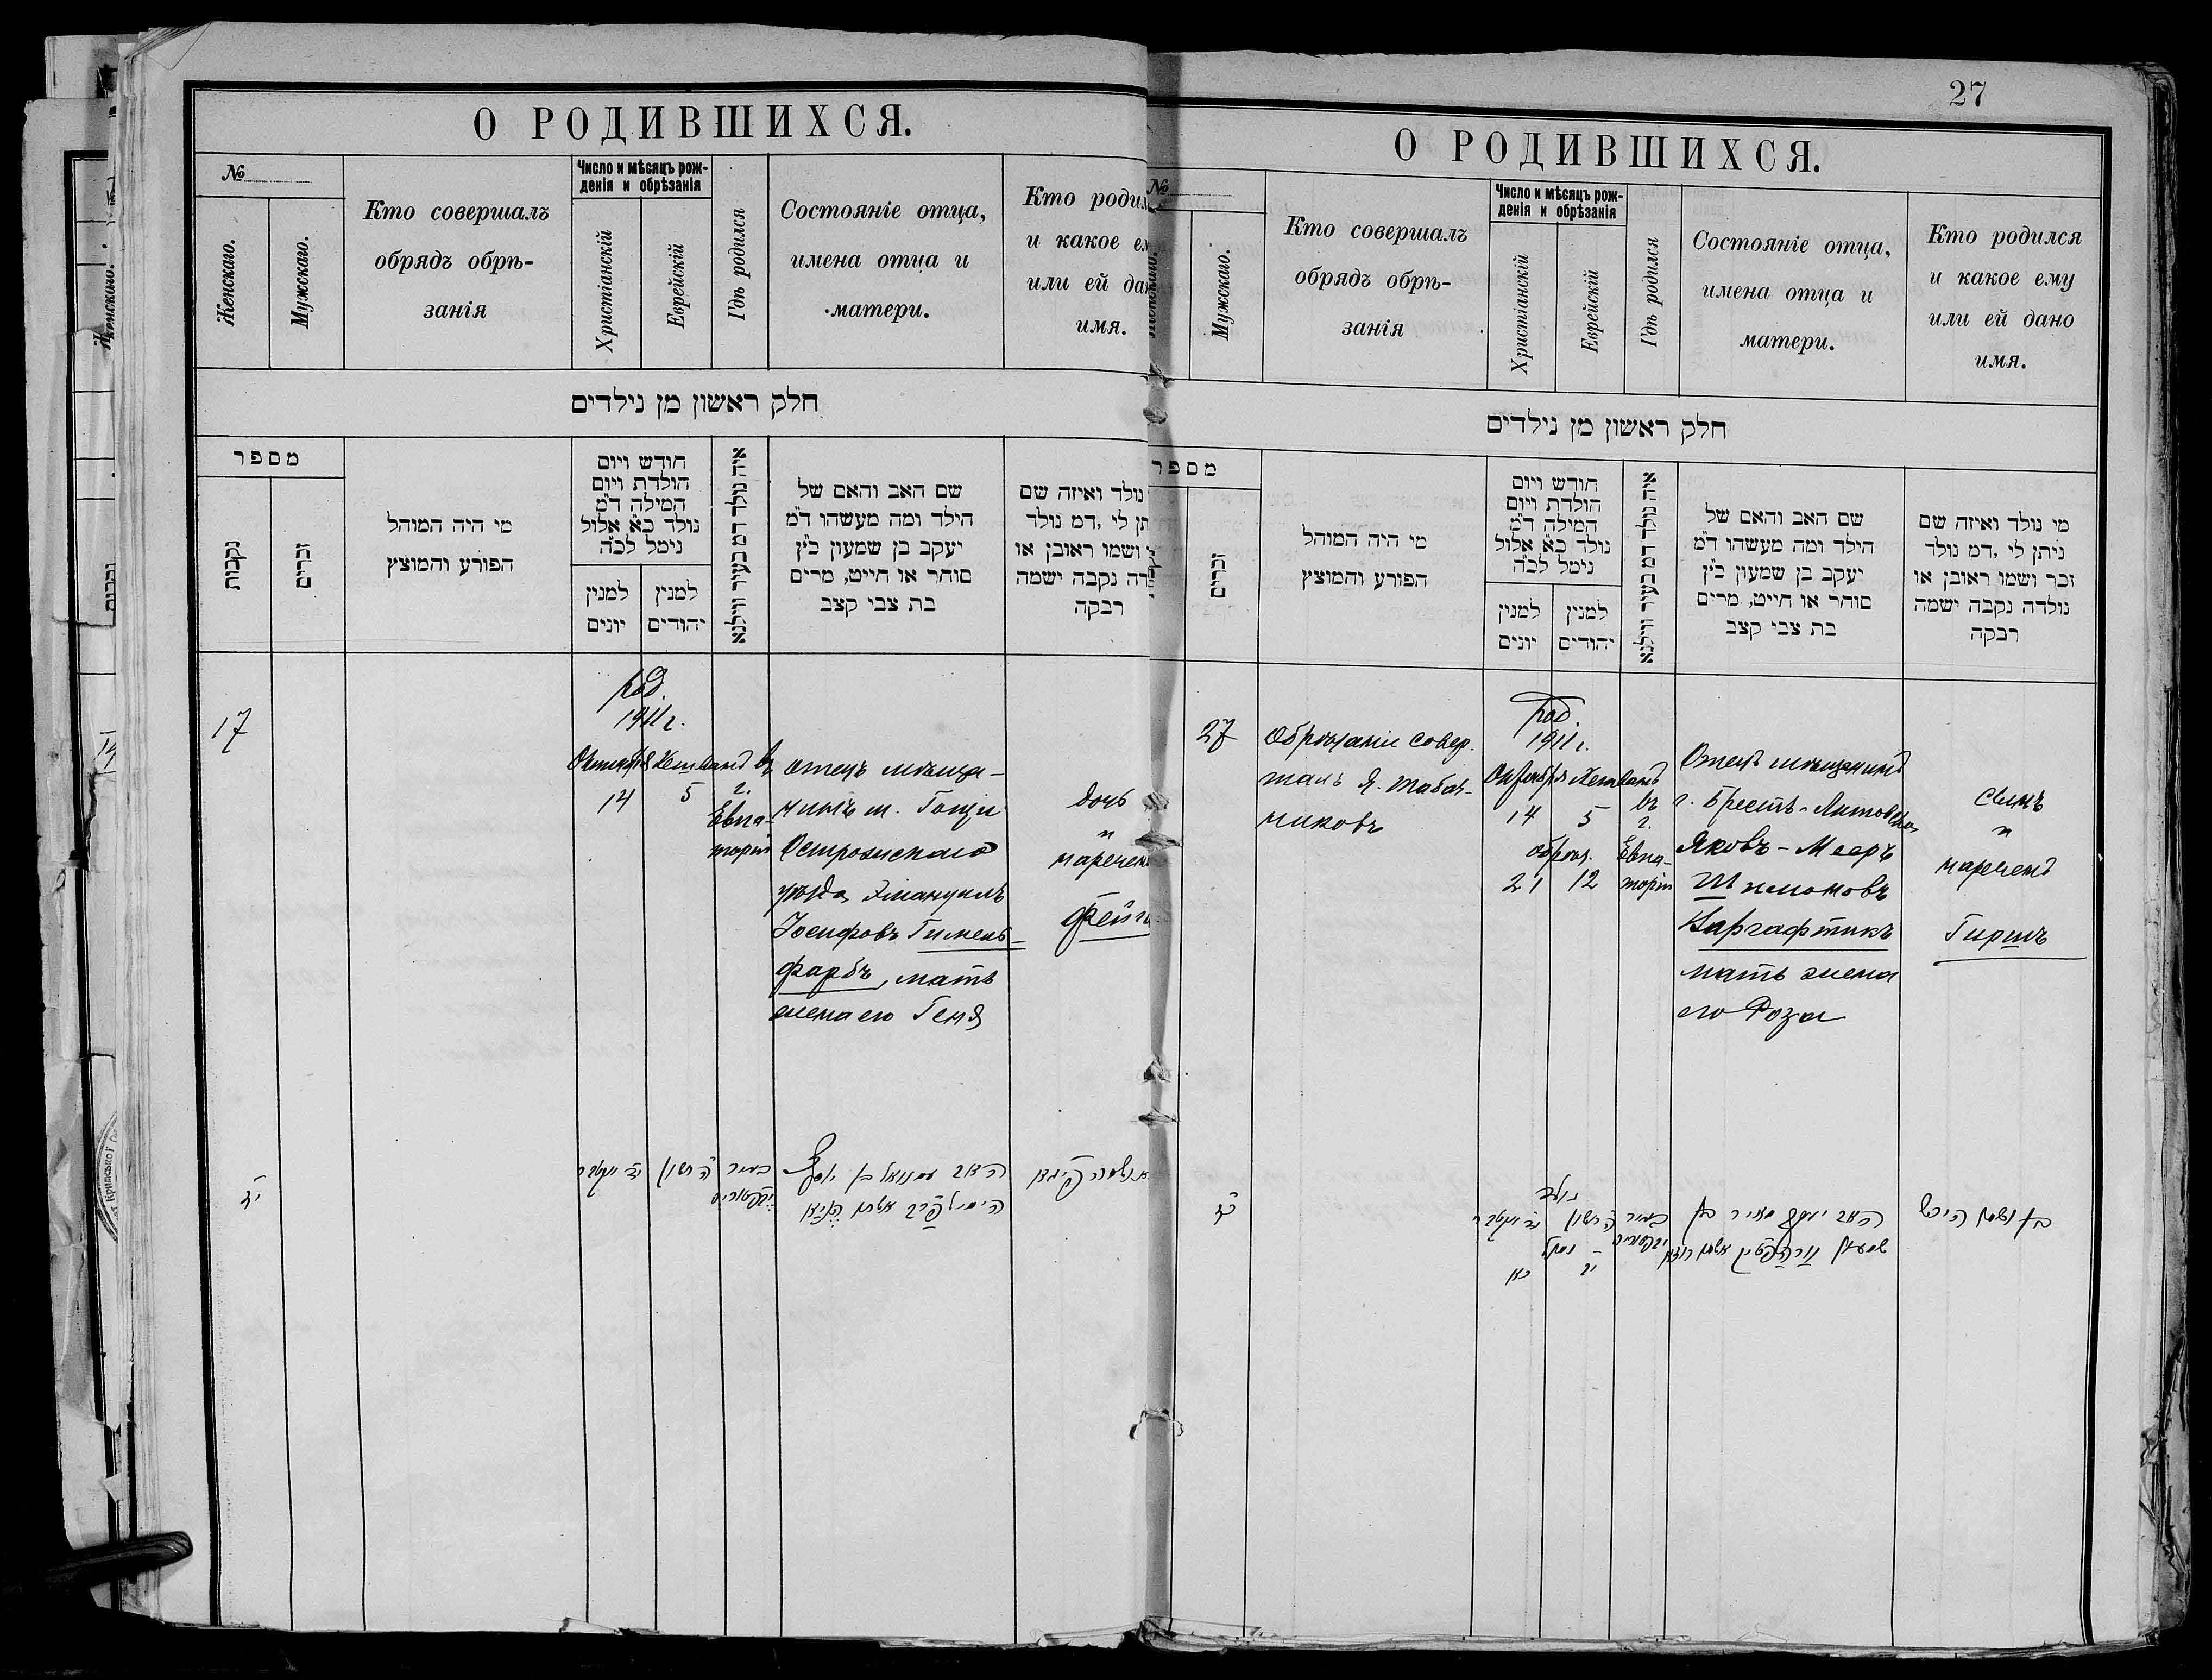 О РОДИВШИХСЯ.
№
Женскаго.
Мужскаго.
Кто совершалъ
обрядъ обрѣ-
занія
Число и мѣсяцъ рож-
денія и обрѣзанія
Христіанскій
Еврейскій
Гдѣ родился
Состояніе отца,
имена отца и
матери.
Кто родил
и какое е
или ей да
имя.
חלק ראשון מן נילדים
מספר
נקבות
זכרים
מי היה המוהל
הפורע והמוצץ
חודש ויום
הולדת ויום
המילה ד״מ
נולד כ״א אלול
נימל לכ״ה
למנין
יונים
למנין
יהודים
איה נולד דמ בעיר ווילנא
שם האב והאם של
הילד ומה מעשהו ד״מ
יעקב בן שמעון כ״ץ
סוחר או חייט, מרים
בת צבי קצב
נולד ואיזה שם
תן לי, דמ נולד
ושמו ראובן או
דה נקבה ישמה
רבקה
17
род.
1911 г.
Октября
14
Хешванъ
5
въ
г.
Евпа-
торіи
отецъ мѣща-
нинъ м. Гощи
Острожскаго
уѣзда Эмануилъ
Іосифовъ Гимель-
фарбъ, мать
жена его Геня
дочь
и
наречен
Фейг
י״ז
י״ד
ה׳ חשון
בעיר
האב עמנואל בן יוסף
27
О РОДИВШИХСЯ.
№
Мужскаго.
Кто совершалъ
обрядъ обрѣ-
занія
Число и мѣсяцъ рож-
денія и обрѣзанія
Христіанскій
Еврейскій
Гдѣ родился
Состояніе отца,
имена отца и
матери.
Кто родился
и какое ему
или ей дано
имя.
חלק ראשון מן נילדים
מספר
זכרים
מי היה המוהל
הפורע והמוצץ
חודש ויום
הולדת ויום
המילה ד״מ
נולד כ״א אלול
נימל לכ״ה
למנין
יונים
למנין
יהודים
איה נולד דמ בעיר ווילנא
שם האב והאם של
הילד ומה מעשהו ד״מ
יעקב בן שמעון כ״ץ
סוחר או חייט, מרים
בת צבי קצב
מי נולד ואיזה שם
ניתן לי, דמ נולד
זכר ושמו ראובן או
נולדה נקבה ישמה
רבקה
27
Обрѣзаніе совер-
шалъ Я. Табач-
никовъ
род.
1911 г.
Октября
14
Хешванъ
5
обрѣз.
21 12
въ
г.
Евпа-
торіи
Отецъ мѣщанинъ
г. Брестъ-Литовска
Яковъ-Мееръ
Шимоновъ
Варгафтикъ
мать жена
его Роза
сынъ
и
нареченъ
Гиршъ
כ״ז
נולד
ה׳ חשון
בעיר
האב יעקב מאיר בן
שמעון
בן ושמו הירש